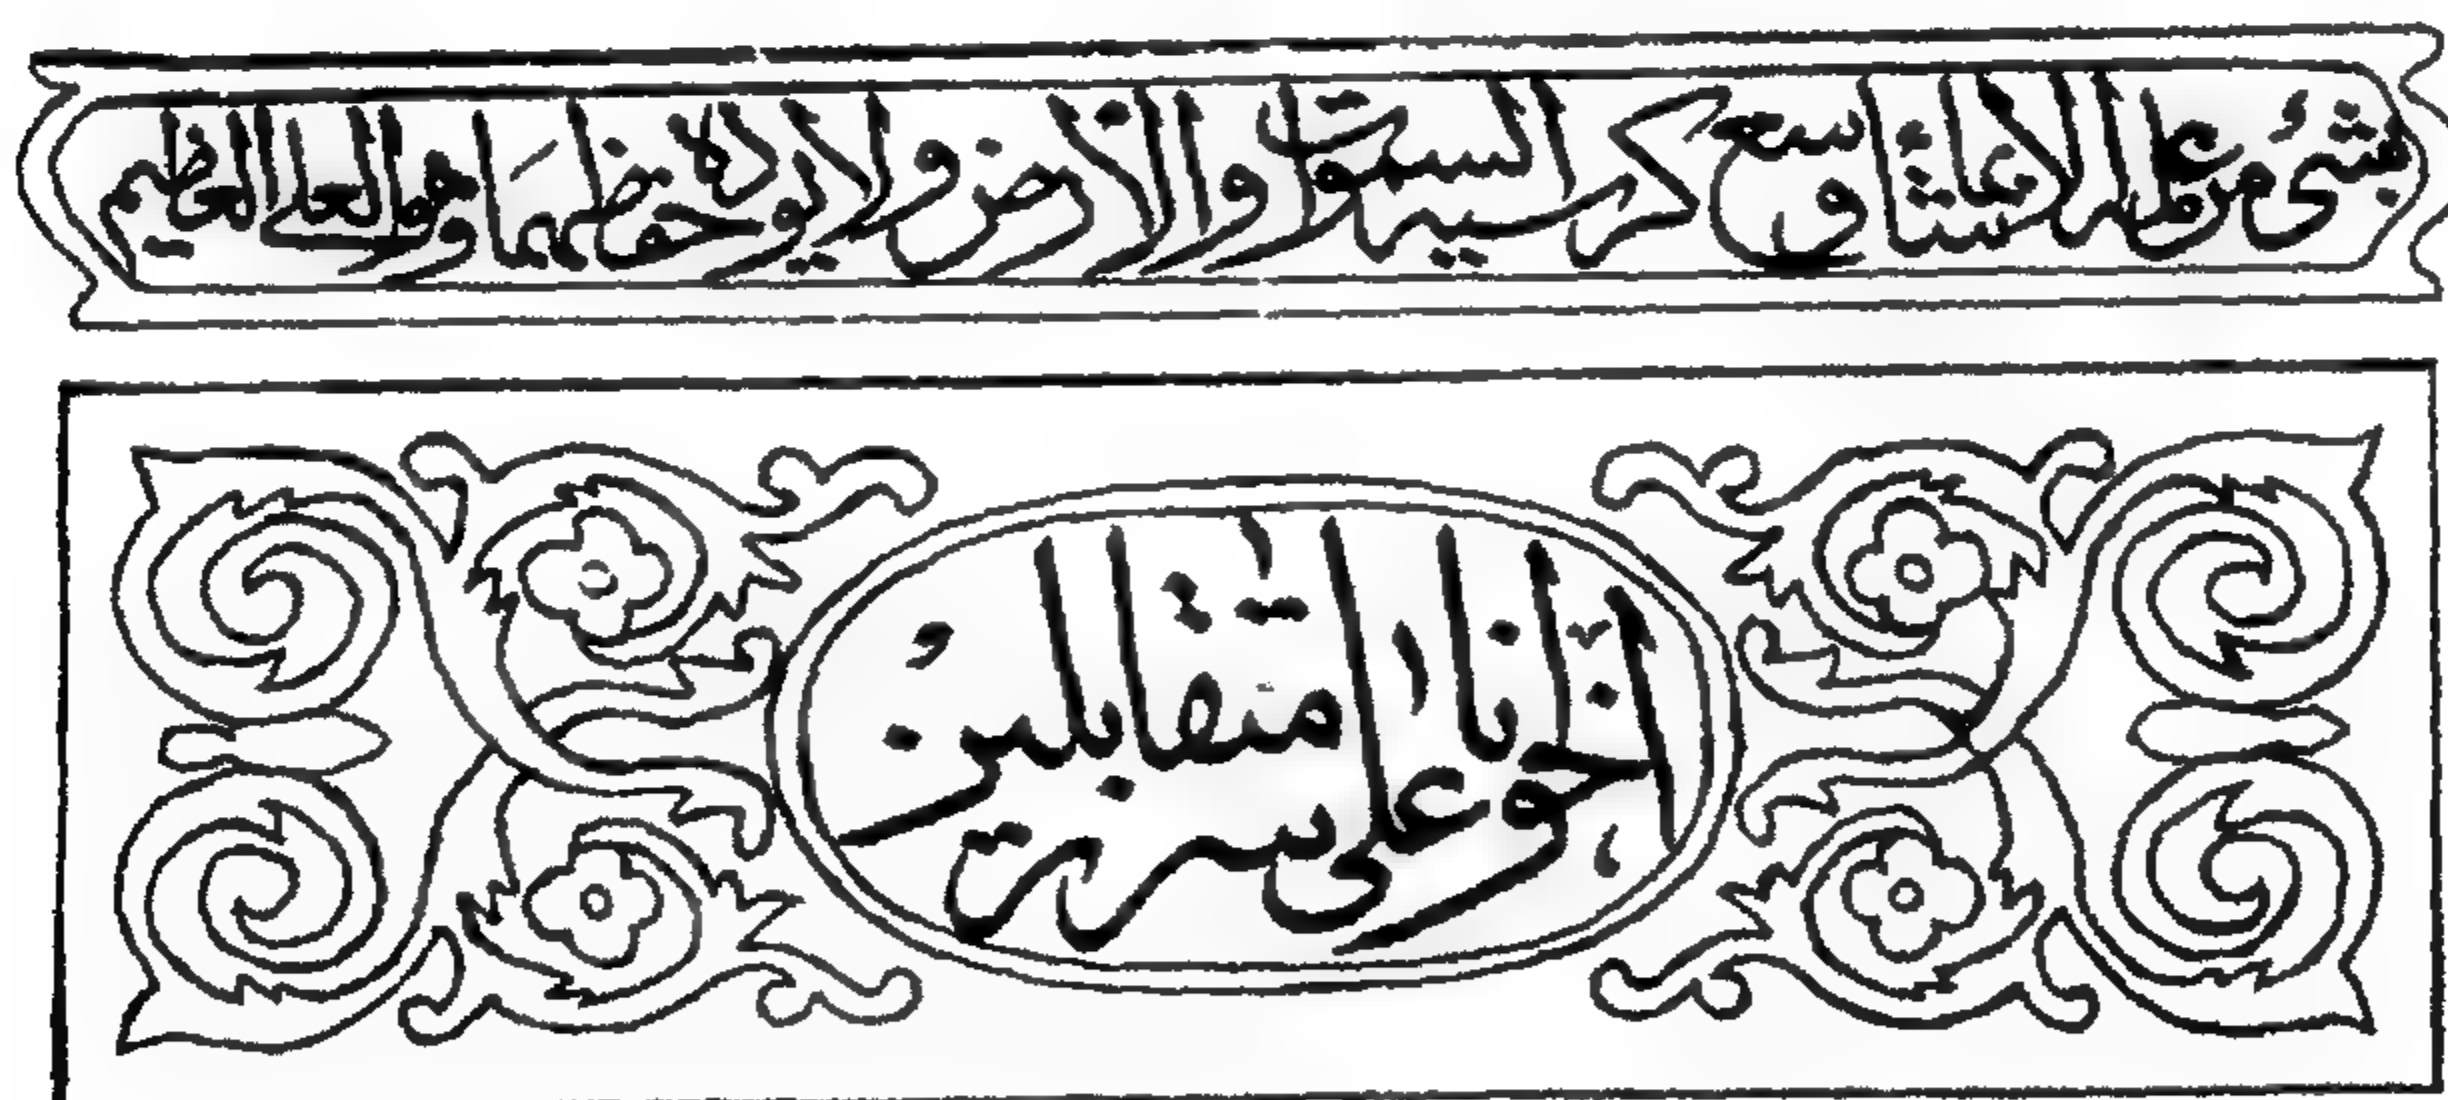 بشیء من علمه الا بما شاء وسع كرسيه السموات والارض ولا يوده حفظهما وهو العلي العظيم
اخوانا على سرر متقابلين